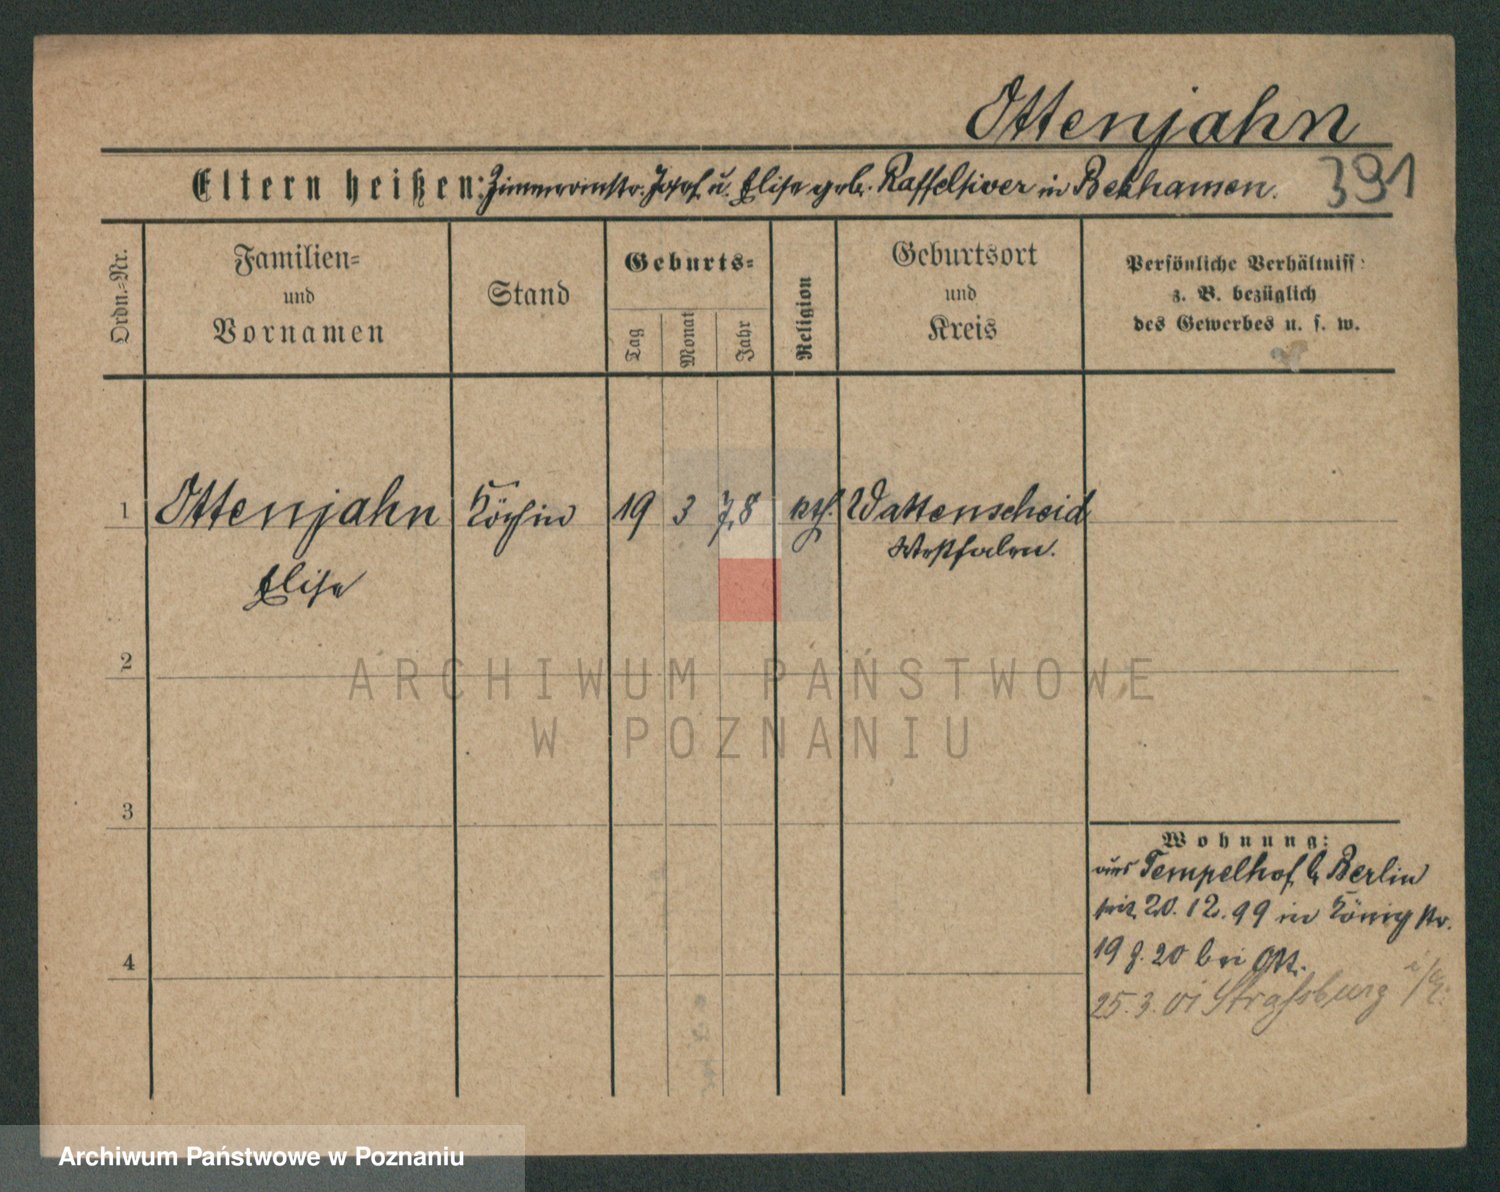 Ottenjahn
Eltern heißen: Zimmermstr. Josef u. Elise geb. Raffelsiver in Bekhamen.
391
Ordn.-Nr.
Familien-
und
Vornamen
Stand
Geburts-
Tag
Monat
Jahr
Religion
Geburtsort
und
Kreis
Persönliche Verhältniss
z. B. bezüglich
des Gewerbes u. s. w.
1 Ottenjahn Köchin 19 3 78 kth. Wattenscheid
Elise Westfalen.
2
ARCHIWUM PAŃSTWOWE
W POZNANIU
3
Wohnung:
aus Tempelhof b Berlin
seit 20.12.99 in Königstr.
19 g. 20 bei Ott.
25.3.01 Strassburg i/E.
4
Archiwum Państwowe w Poznaniu